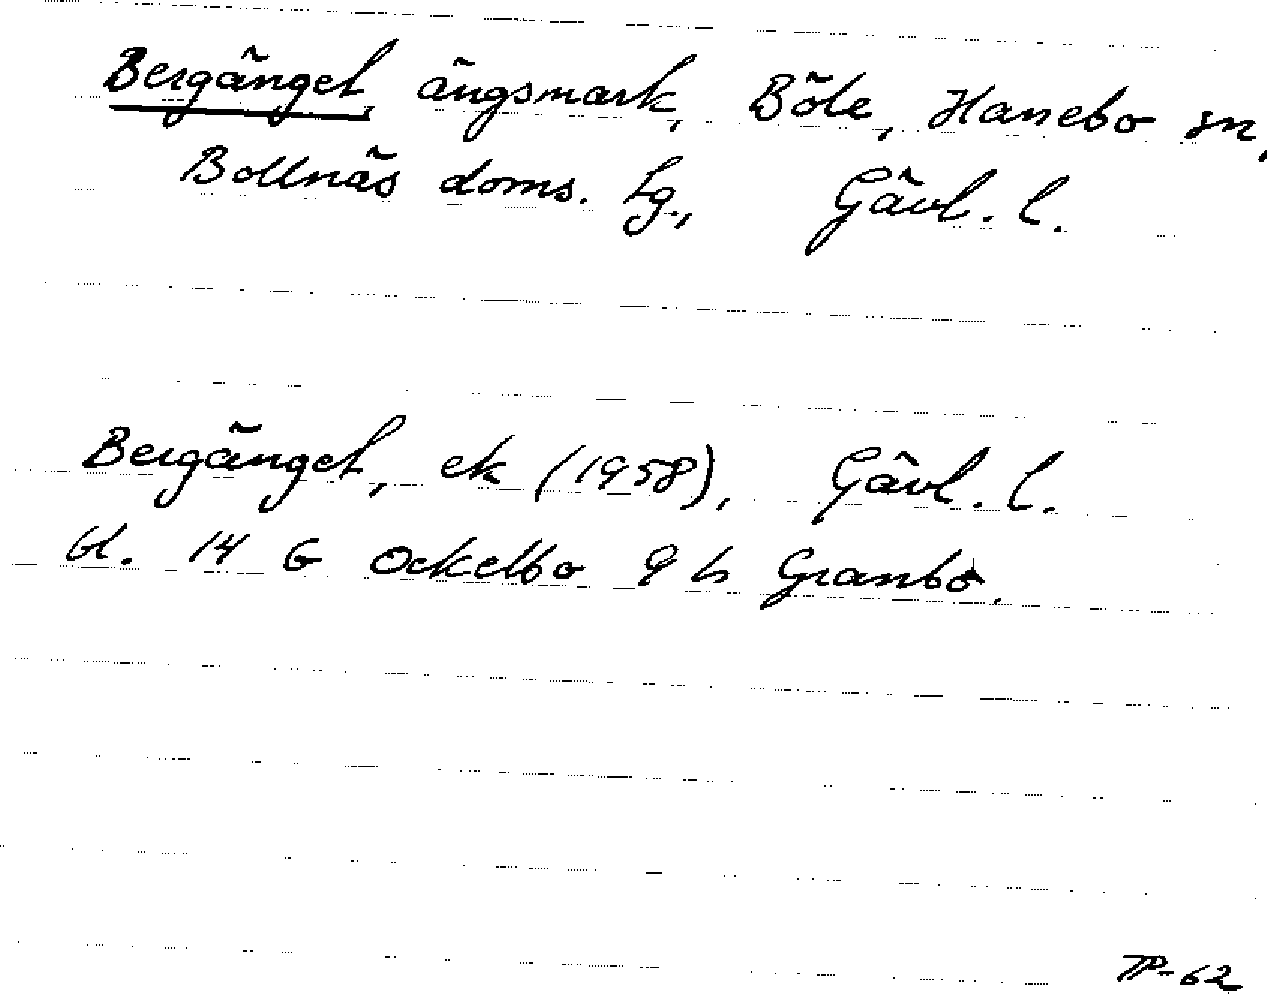 Bergänget, ängsmark, Böle, Hanebo sn,
Bollnäs doms. lg., Gävl. l.
Bergänget, ek (1958), Gävl. l.
bl. 14 G Ockelbo 9 h Granbo.
TP-62